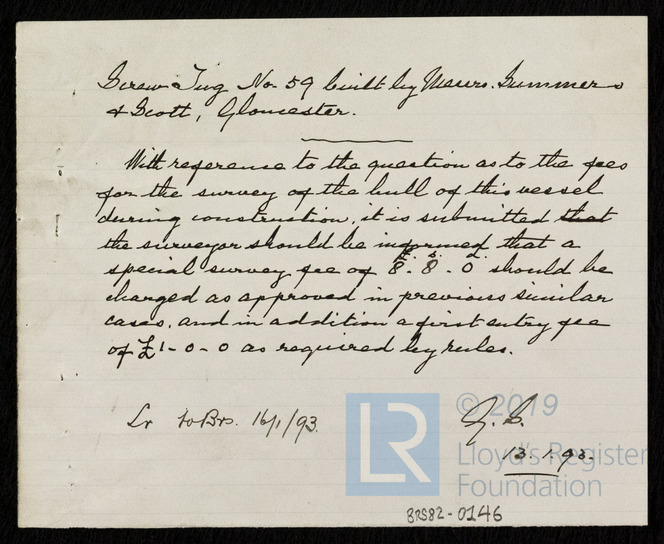 Screw Tug No. 59 built by Messrs. Summers
& Scott, Gloucester.
With reference to the question as to the fees
for the survey of the hull of this vessel
during construction, it is submitted that
the surveyor should be informed that a
£. s. d.
special survey fee of 8. 8. 0 should be
charged as approved in previous similar
cases, and in addition a first entry fee
of £1-0-0 as required by rules.
Lr to Brs. 16/1/93.
13.1.93.
LR
© 2019
Lloyd's Register
Foundation
BRS82-0146